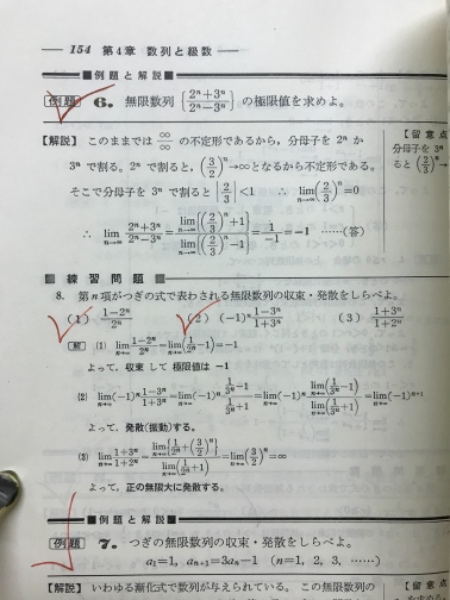 154 第4章 数列と級数
■例題と解説■
例題 6. 無限数列 {(2ⁿ+3ⁿ)/(2ⁿ−3ⁿ)} の極限値を求めよ。
【解説】 このままでは ∞/∞ の不定形であるから，分母子を 2ⁿ か
3ⁿ で割る。2ⁿ で割ると，(3/2)ⁿ→∞となるから不定形である。
そこで分母子を 3ⁿ で割ると |2/3|<1 ∴ lim[n→∞](2/3)ⁿ=0
∴ lim[n→∞] (2ⁿ+3ⁿ)/(2ⁿ−3ⁿ) = lim[n→∞]{(2/3)ⁿ+1}/lim[n→∞]{(2/3)ⁿ−1} = 1/−1 = −1 ……(答)
【留意点
分母子を 3ⁿ
ると (2/3)ⁿ→
■ 練習問題 ■
8. 第n項がつぎの式で表わされる無限数列の収束・発散をしらべよ。
(1) (1−2ⁿ)/2ⁿ (2) (−1)ⁿ(1−3ⁿ)/(1+3ⁿ) (3) (1+3ⁿ)/(1+2ⁿ)
解 (1) lim[n→∞](1−2ⁿ)/2ⁿ=lim[n→∞](1/2ⁿ−1)=−1
よって，収束 して 極限値は −1
(2) lim[n→∞](−1)ⁿ(1−3ⁿ)/(1+3ⁿ)=lim[n→∞](−1)ⁿ(1/3ⁿ−1)/(1/3ⁿ+1)=lim[n→∞](−1)ⁿ lim[n→∞](1/3ⁿ−1)/lim[n→∞](1/3ⁿ+1)=lim[n→∞](−1)ⁿ⁺¹
よって，発散(振動)する。
(3) lim[n→∞](1+3ⁿ)/(1+2ⁿ)=lim[n→∞]{1/2ⁿ+(3/2)ⁿ}/lim[n→∞](1/2ⁿ+1)=lim[n→∞](3/2)ⁿ=∞
よって，正の無限大に発散する。
■例題と解説■
例題 7. つぎの無限数列の収束・発散をしらべよ。
a₁=1，aₙ₊₁=3aₙ−1 (n=1, 2, 3, ……)
【解説】 いわゆる漸化式で数列が与えられている。この無限数列の
【留意